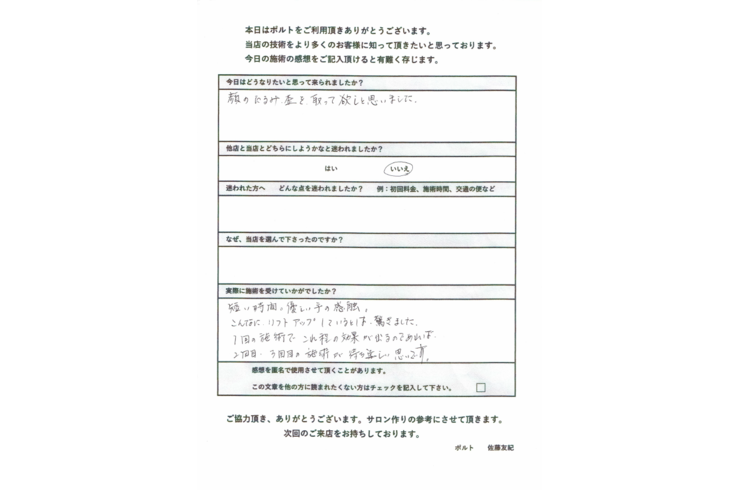 本日はポルトをご利用頂きありがとうございます。
当店の技術をより多くのお客様に知って頂きたいと思っております。
今日の施術の感想をご記入頂けると有難く存じます。
今日はどうなりたいと思って来られましたか？
顔のたるみ 歪を取って欲しと思いました。
他店と当店とどちらにしようかなと迷われましたか？
はい いいえ
迷われた方へ どんな点を迷われましたか？ 例：初回料金、施術時間、交通の便など
なぜ、当店を選んで下さったのですか？
実際に施術を受けていかがでしたか？
短い時間。優しい手の感触。
こんなに リフトアップしているとは、驚きました。
1回の施術で これ程の効果が出るのであれば、
2回目、3回目の施術が 待ち楽しい 思いです。
感想を匿名で使用させて頂くことがあります。
この文章を他の方に読まれたくない方はチェックを記入して下さい。
ご協力頂き、ありがとうございます。サロン作りの参考にさせて頂きます。
次回のご来店をお持ちしております。
ポルト 佐藤友紀